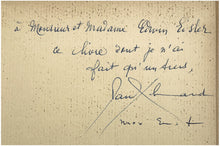 à Monsieur et Madame Edwin Eisler
ce livre dont je n'ai
fait qu'un tiers,
Paul Eluard
max Ernst